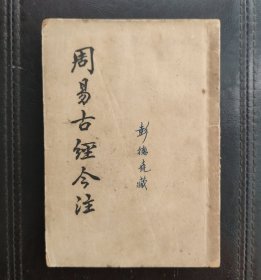 周易古經今注
彭德堯藏